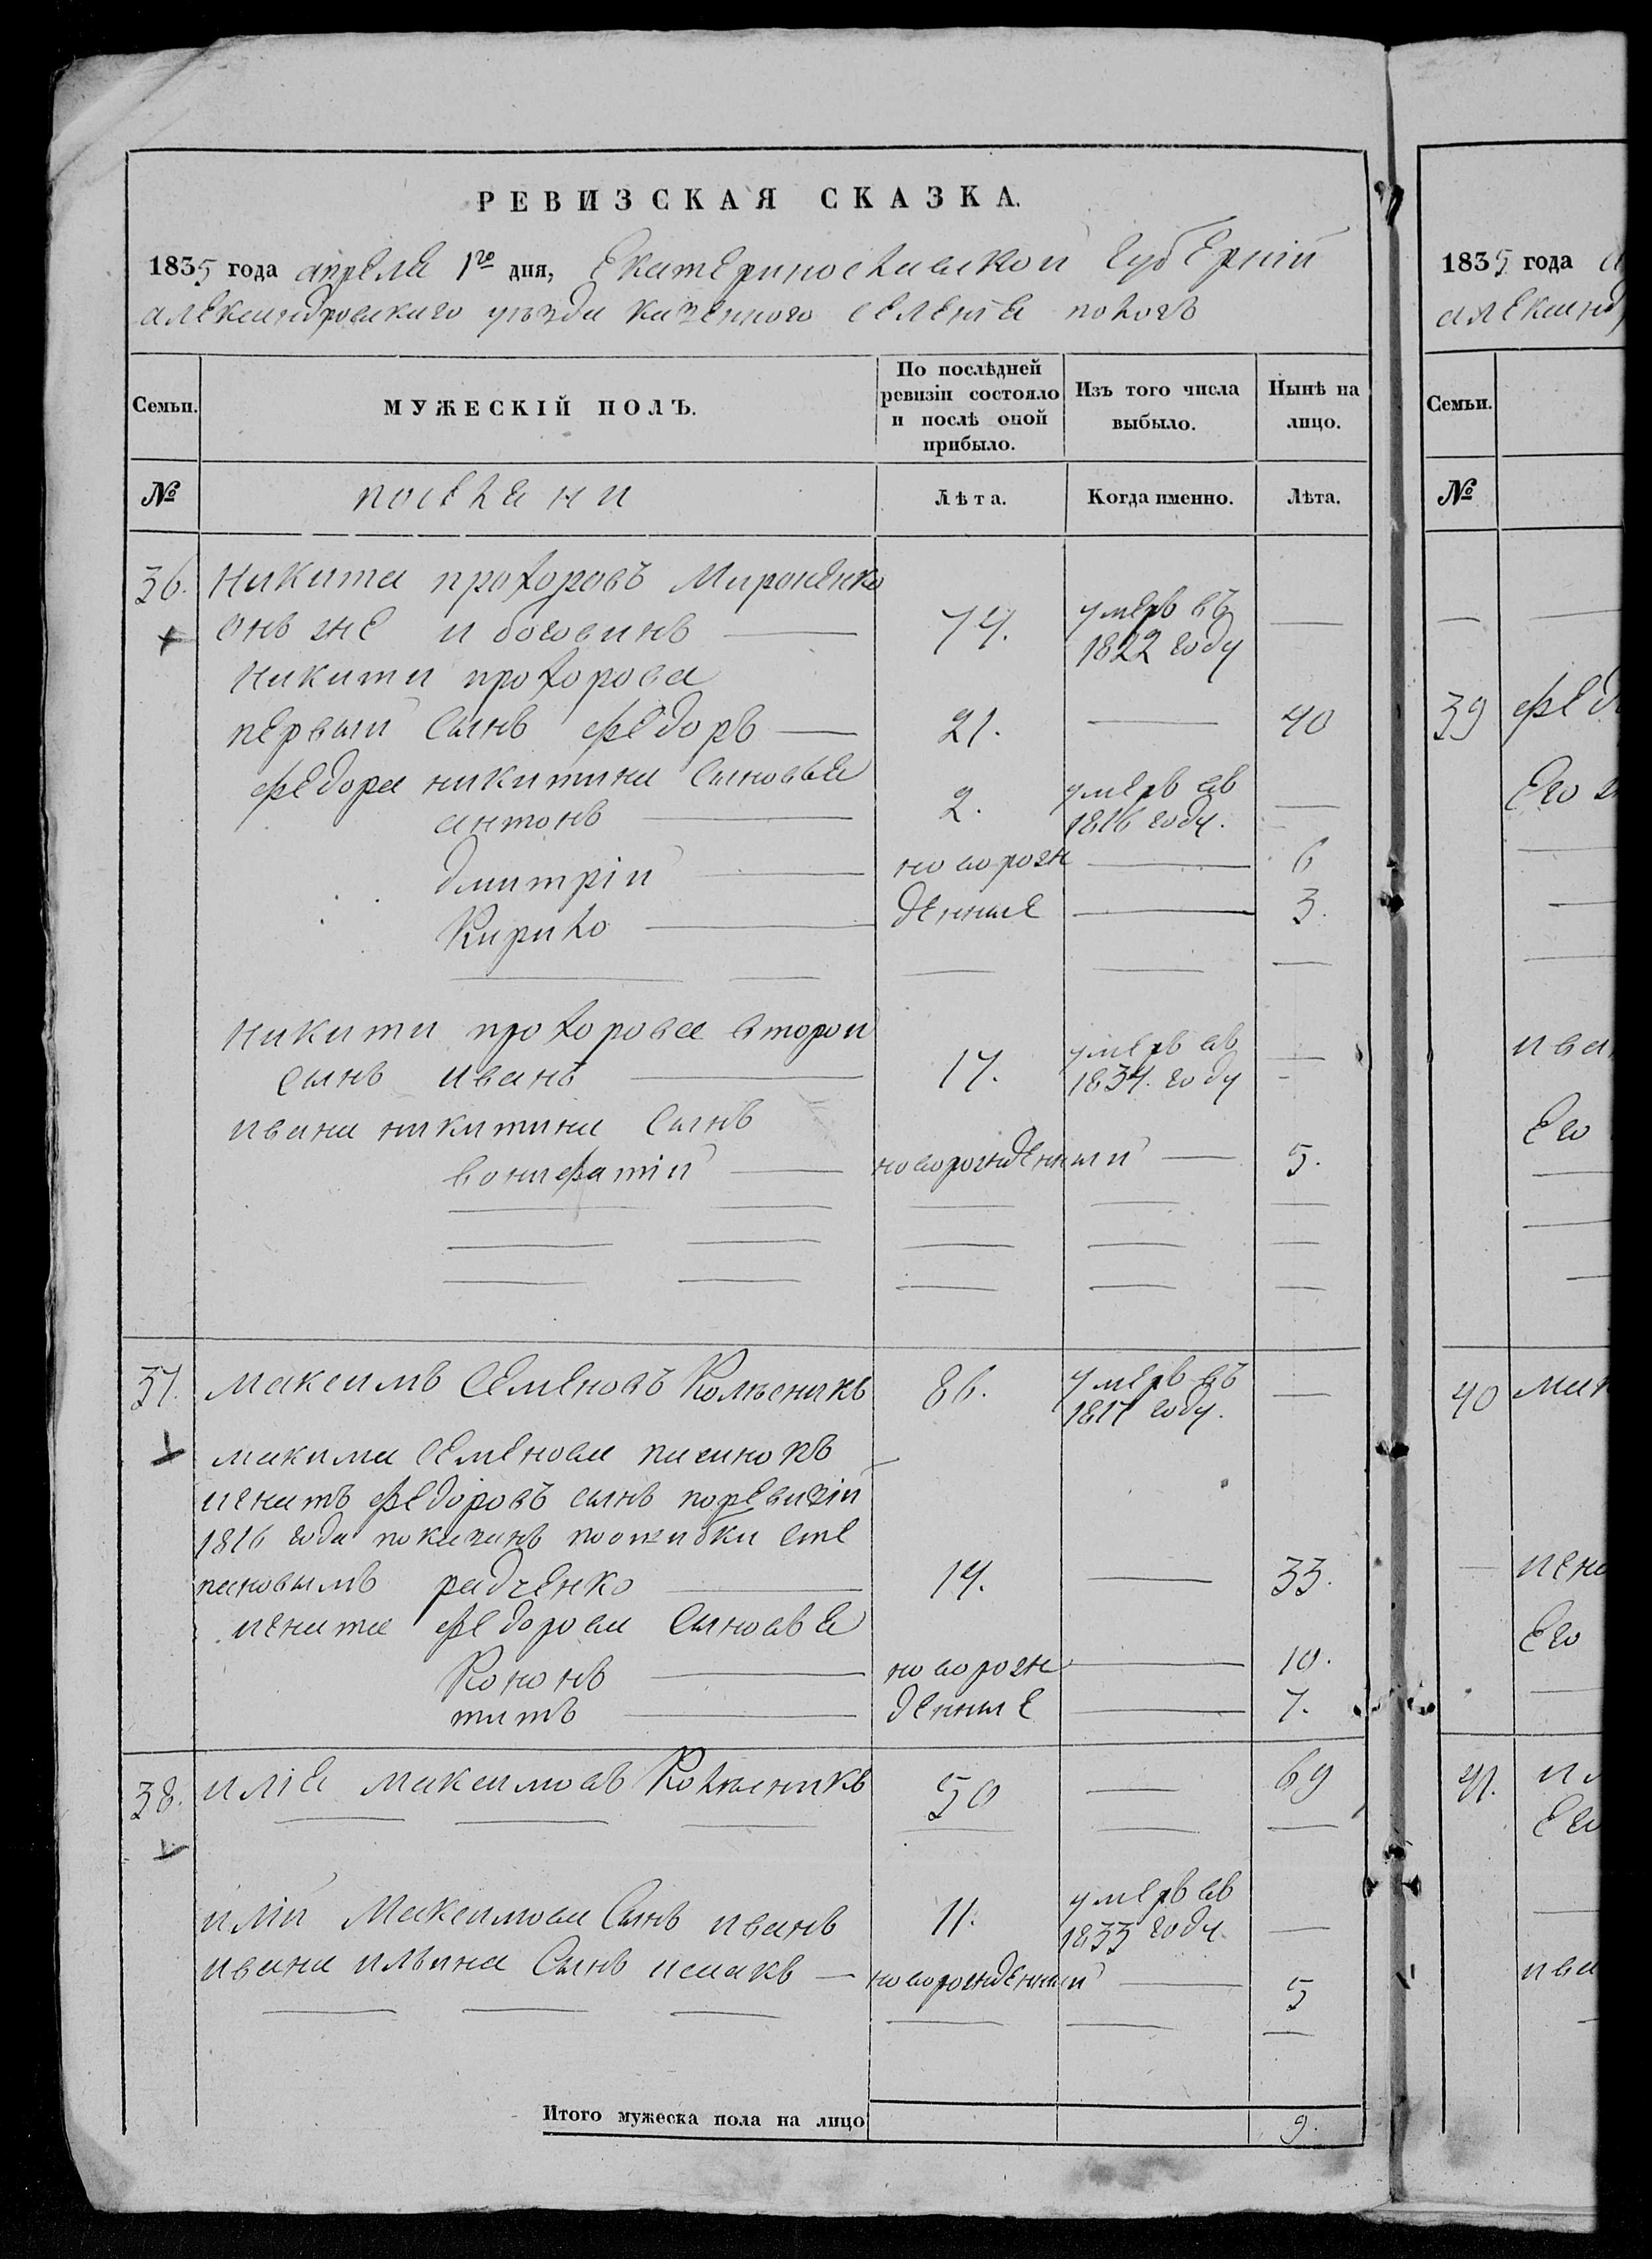 РЕВИЗСКАЯ СКАЗКА.
1835 года апреля 1го дня, Екатеринославской губернiи
александровскаго уезда казенного селения пологъ
Семьи. МУЖЕСКІЙ ПОЛЪ. По послѣдней ревизіи состояло и послѣ оной прибыло. Изъ того числа выбыло. Нынѣ на лицо.
№ поселяни Лѣта. Когда именно. Лѣта.
36. Никита прохоровъ Мироненко
онъ же и боговинъ — 74. умеръ въ 1822 году —
Никиты прохорова
первый сынъ федоръ — 21. — 40
федора никитина сыновья
антонъ — 2. умеръ въ 1816 году. —
дмитрiй — новорож — 6
Кирило — денные — 3.
Никиты прохорова второй
сынъ иванъ — 17. умеръ въ 1834. году —
ивана никитина сынъ
вонифатiй — новорожденный — 5.
37. максимъ Семеновъ Колесникъ 86. умеръ въ 1817 году. —
макима Семенова пасинокъ
игнатъ федоровъ сынъ поревизiи
1816 года показанъ поошибки сте
пановымъ радченко — 14. — 33.
игната федорова сыновья
Кононъ — новорож — 10.
титъ — денные — 7.
38. илiя максимовъ Колесникъ 50 — 69
илiи Максимова Сынъ иванъ 11. умеръ въ 1833 году. —
ивана ильина Сынъ исакъ — новорожденный — 5
Итого мужеска пола на лицо 9.
1835 года а
александ
Семьи.
№
39 федо
Его
ива
Его
40 мак
игна
Его
41. ил
Его
ива